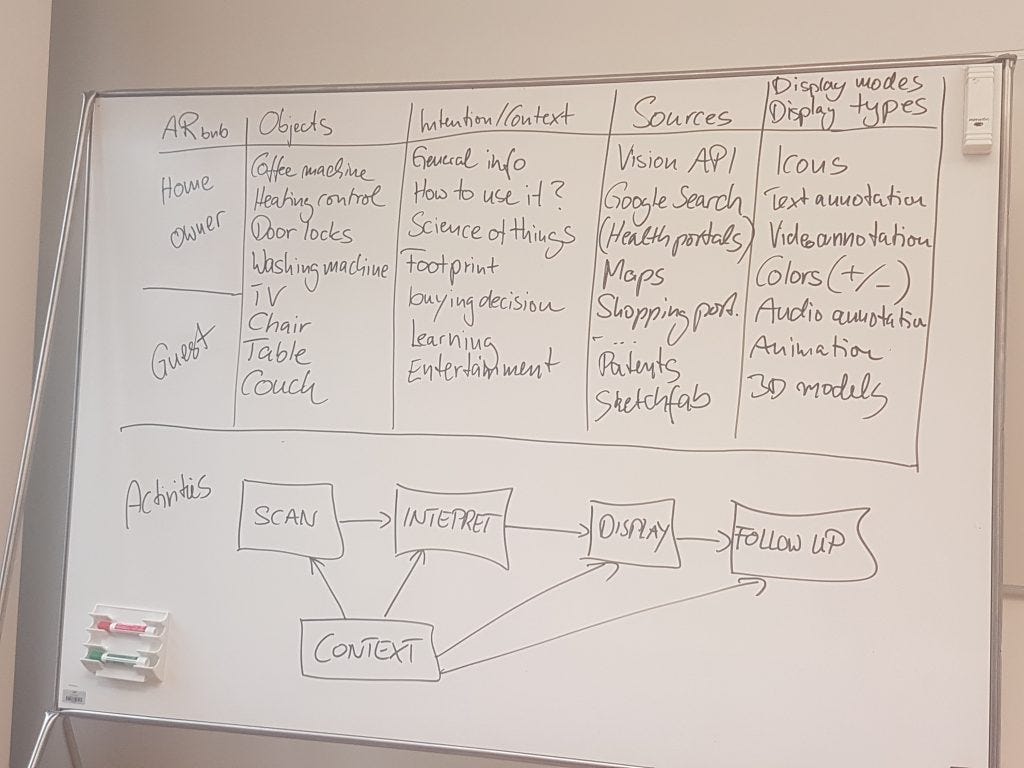 ARbnb
Home
Owner
Guest
Objects
Coffee machine
Heating control
Door locks
Washing machine
TV
Chair
Table
Couch
Intention/Context
General info
How to use it?
Science of things
Footprint
buying decision
Learning
Entertainment
Sources
Vision API
Google Search
(Health portals)
Maps
Shopping port.
- ...
Patents
Sketchfab
Display modes
Display types
Icons
Text annotation
Video annotation
Colors (+/-)
Audio annotation
Animation
3D models
Activities
SCAN
INTEPRET
DISPLAY
FOLLOW UP
CONTEXT